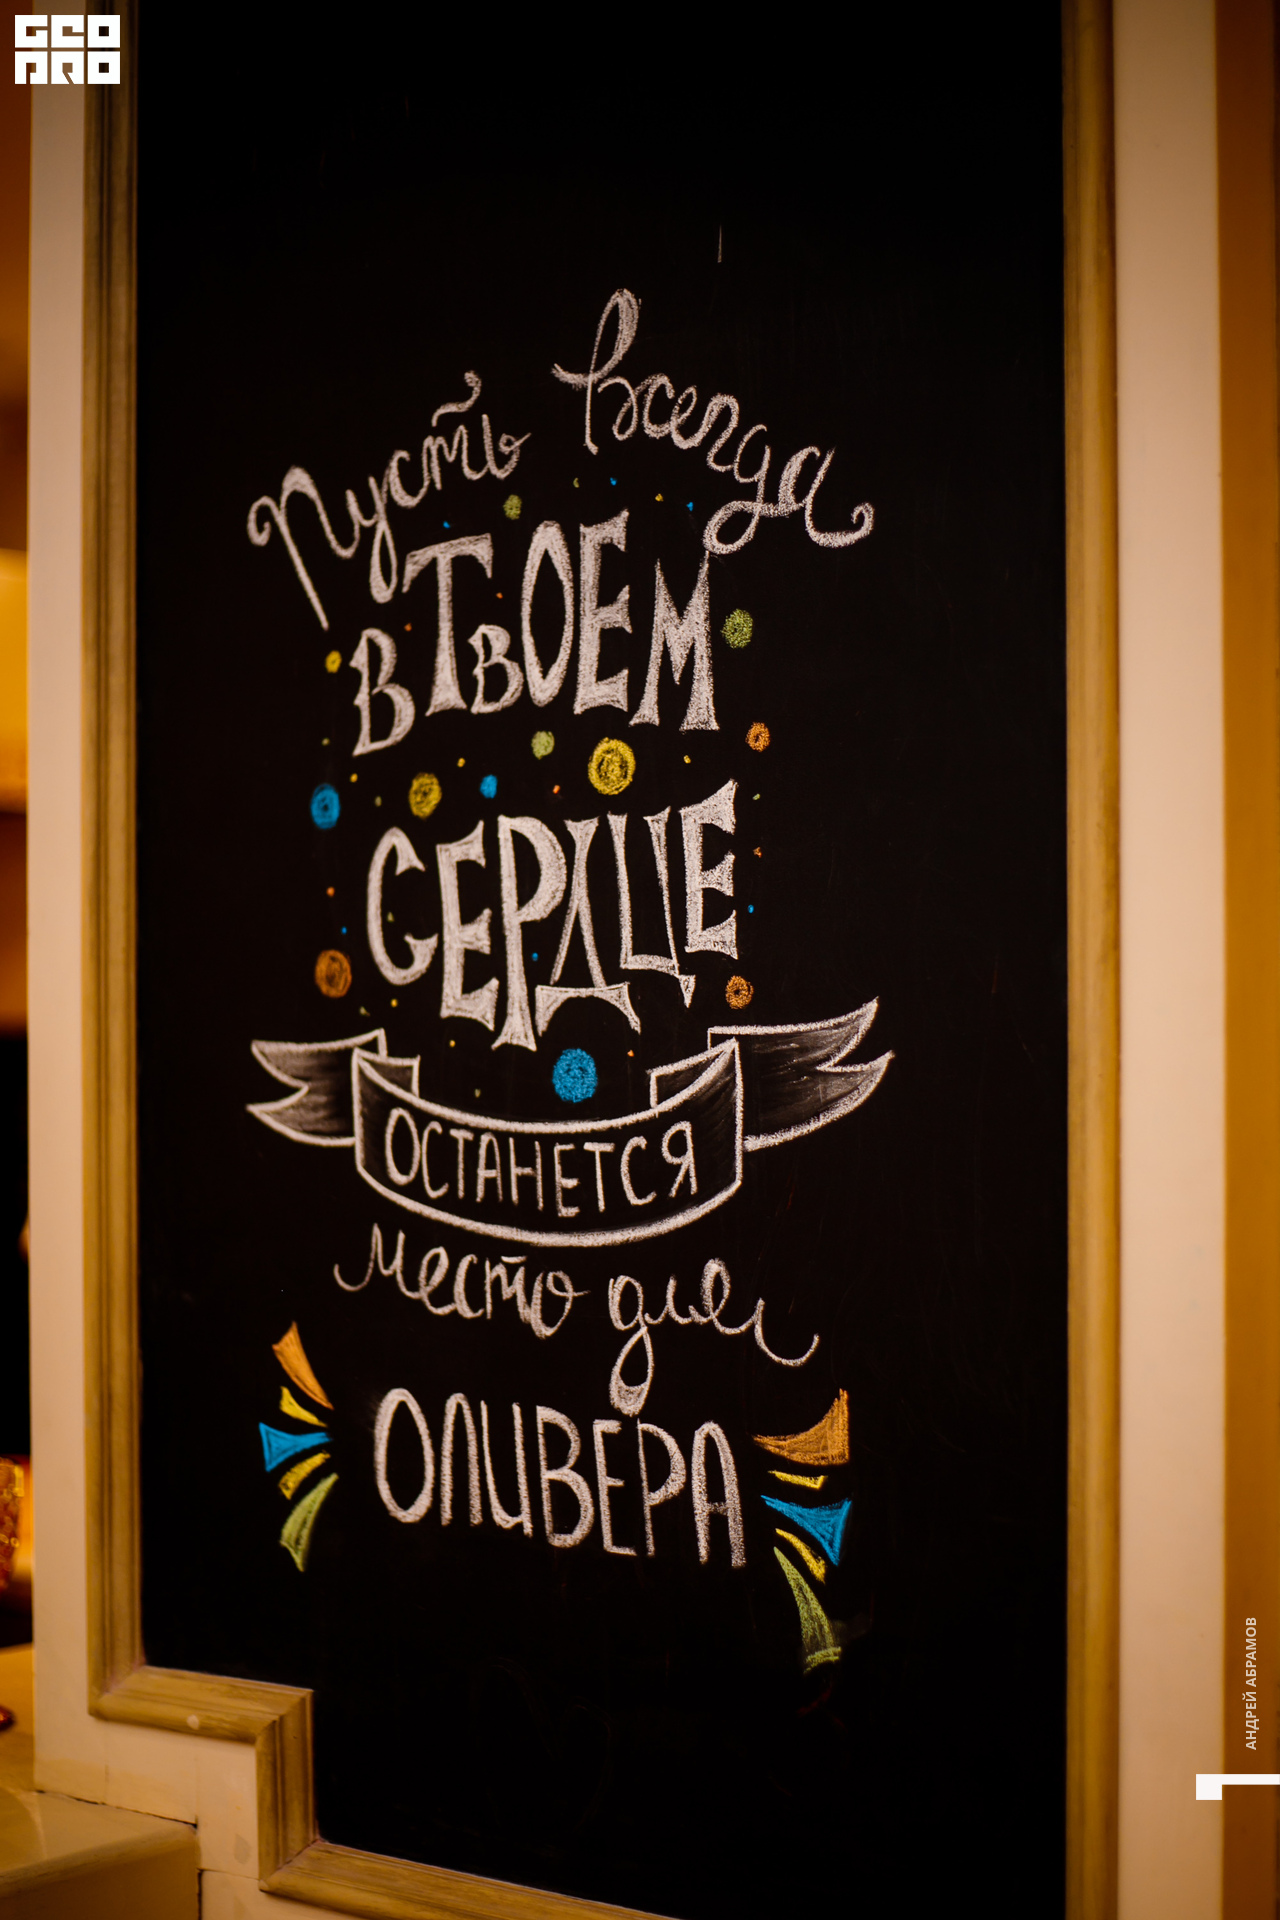 GEO
PRO
Пусть всегда
в Твоем
сердце
останется
место для
Оливера
АНДРЕЙ АБРАМОВ